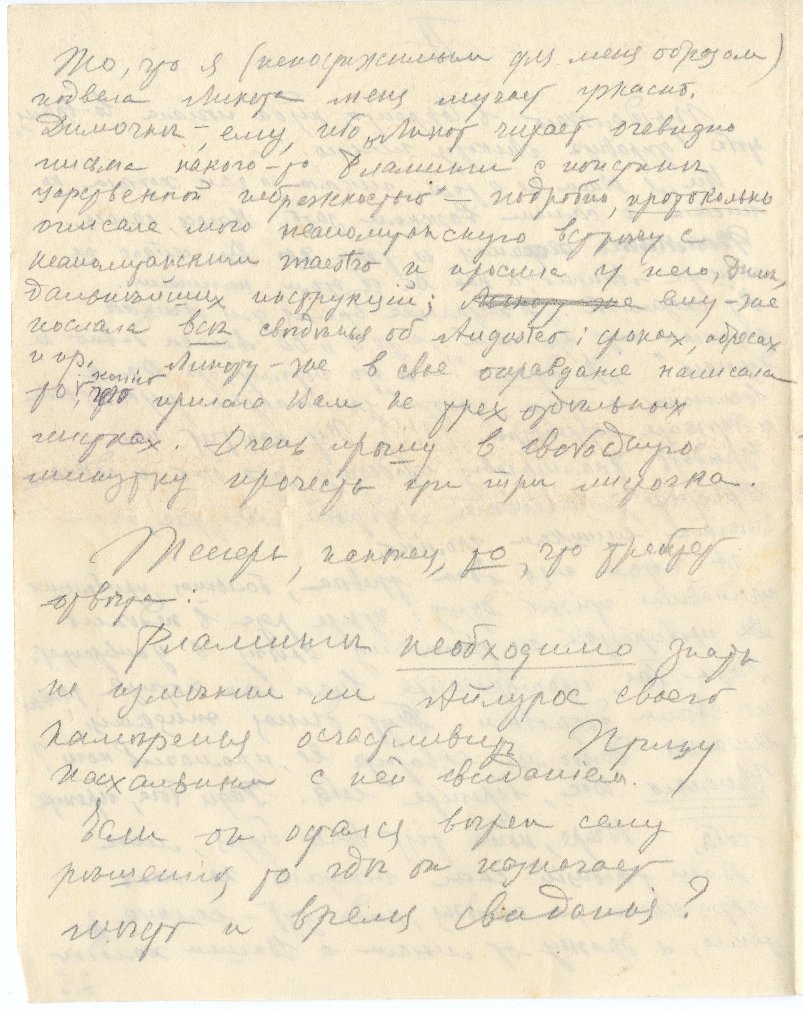 То, что я (непостижимым для меня образом)
подвела Ликота меня мучает ужасно.
Димочки-, ему, ибо „Ликот читает очевидно
письма какого-то Фламинги с поистине
царственной небрежностью" — подробно, протокольно
описала мою неаполитанскую встречу с
неаполитанским maestro и просила у него, Димы,
дальнѣйших инструкцій; ему-же
послала все свѣдѣнья об Augusteo: сроках, адресах
и пр. Ликоту-же в свое оправданіе написала
то, что прилагаю Вам на трех отдѣльных
листках. Очень прошу в свободную
минутку прочесть эти три листочка.
Теперь, наконец, то, что требует
отвѣта:
Фламинги необходимо знать
не измѣнил ли Айлурос своего
намѣренья осчастливить Птицу
пасхальным с ней свиданіем.
Если он остался вѣрен сему
рѣшенію, то гдѣ он назначает
мѣсто и время свиданія?